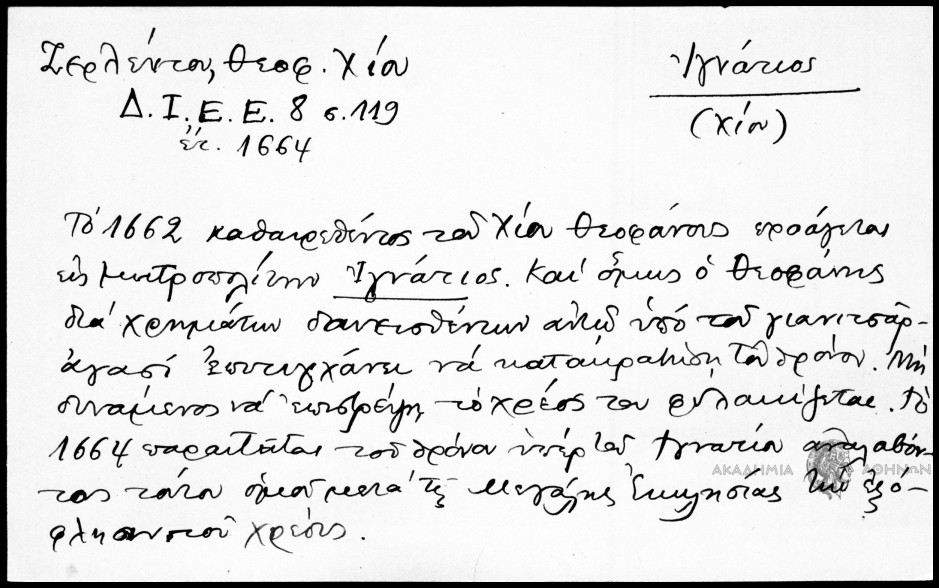 Ζερλέντου, Θεοφ. Χίου
Δ. Ι. Ε. Ε. 8 σ. 119
ἔτ. 1664
Ἰγνάτιος
(Χίου)
Τὸ 1662 καθαιρεθέντος τοῦ Χίου Θεοφάνους προάγεται
εἰς μητροπολίτην Ἰγνάτιος. Καὶ ὅμως ὁ Θεοφάνης
διὰ χρημάτων δανεισθέντων αὐτῷ ὑπὸ τοῦ γιανιτσάρ-
άγασί ἐπιτυγχάνει νὰ κατακρατήσῃ τοῦ θρόνου. Μὴ
δυνάμενος νὰ ἐπιστρέψῃ τὸ χρέος του φυλακίζεται. Τὸ
1664 παραιτεῖται τοῦ θρόνου ὑπὲρ τοῦ Ἰγνατίου ἀναλαβόν-
τος τούτου ὁμοῦ μετὰ τῆς Μεγάλης Ἐκκλησίας τὴν ἐξό-
φλησιν τοῦ χρέους.
ΑΚΑΔΗΜΙΑ ΑΘΗΝΩΝ